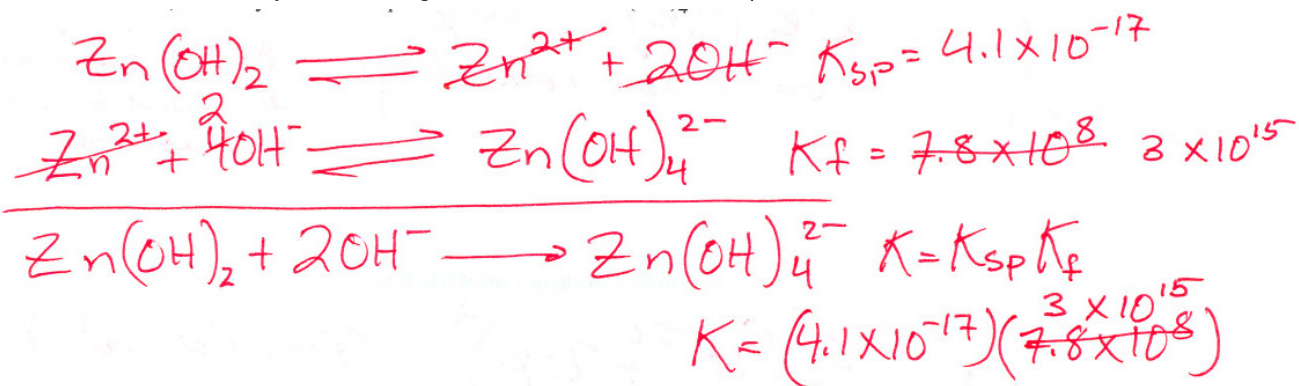 Zn(OH)₂ ⇌ Zn²⁺ + 2OH⁻ Ksp = 4.1 x 10⁻¹⁷
Zn²⁺ + 4OH⁻ 2 ⇌ Zn(OH)₄²⁻ Kf = 7.8 x 10⁸ 3 x 10¹⁵
Zn(OH)₂ + 2OH⁻ → Zn(OH)₄²⁻ K = Ksp Kf
3 x 10¹⁵
K = (4.1 x 10⁻¹⁷)(7.8 x 10⁸)